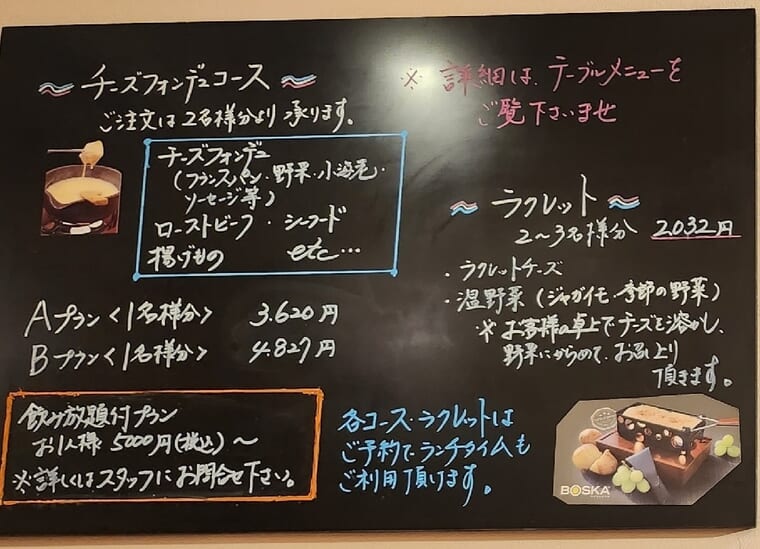 チーズフォンデュコース
ご注文は2名様分より承ります。
チーズフォンデュ
(フランスパン・野菜・小海老・
ソーセージ等)
ローストビーフ・シーフード
揚げもの etc…
Aプラン<1名様分> 3.620円
Bプラン<1名様分> 4.827円
飲み放題付プラン
お1人様 5000円(税込)~
※詳しくはスタッフにお問合せ下さい。
※詳細は、テーブルメニューを
ご覧下さいませ
ラクレット
2~3名様分 2.032円
・ラクレットチーズ
・温野菜(ジャガイモ・季節の野菜)
※お客様の卓上でチーズを溶かし、
野菜にからめて、お召し上り
頂きます。
各コース・ラクレットは
ご予約でランチタイムも
ご利用頂けます。
BOSKA